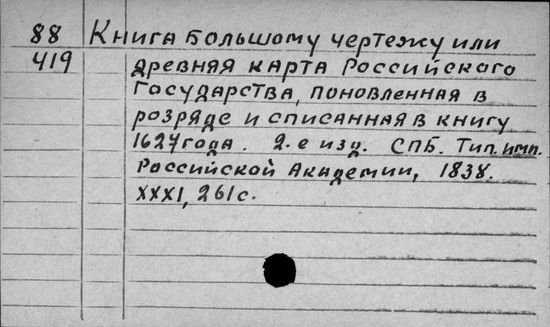 88 Книга Большому чертежу или
419 древняя карта Российского
Государства, поновленная в
розряде и списанная в книгу
1627 года. 2-е изд. СПБ. Тип. имп.
Российской Академии, 1838.
XXXI, 261 с.